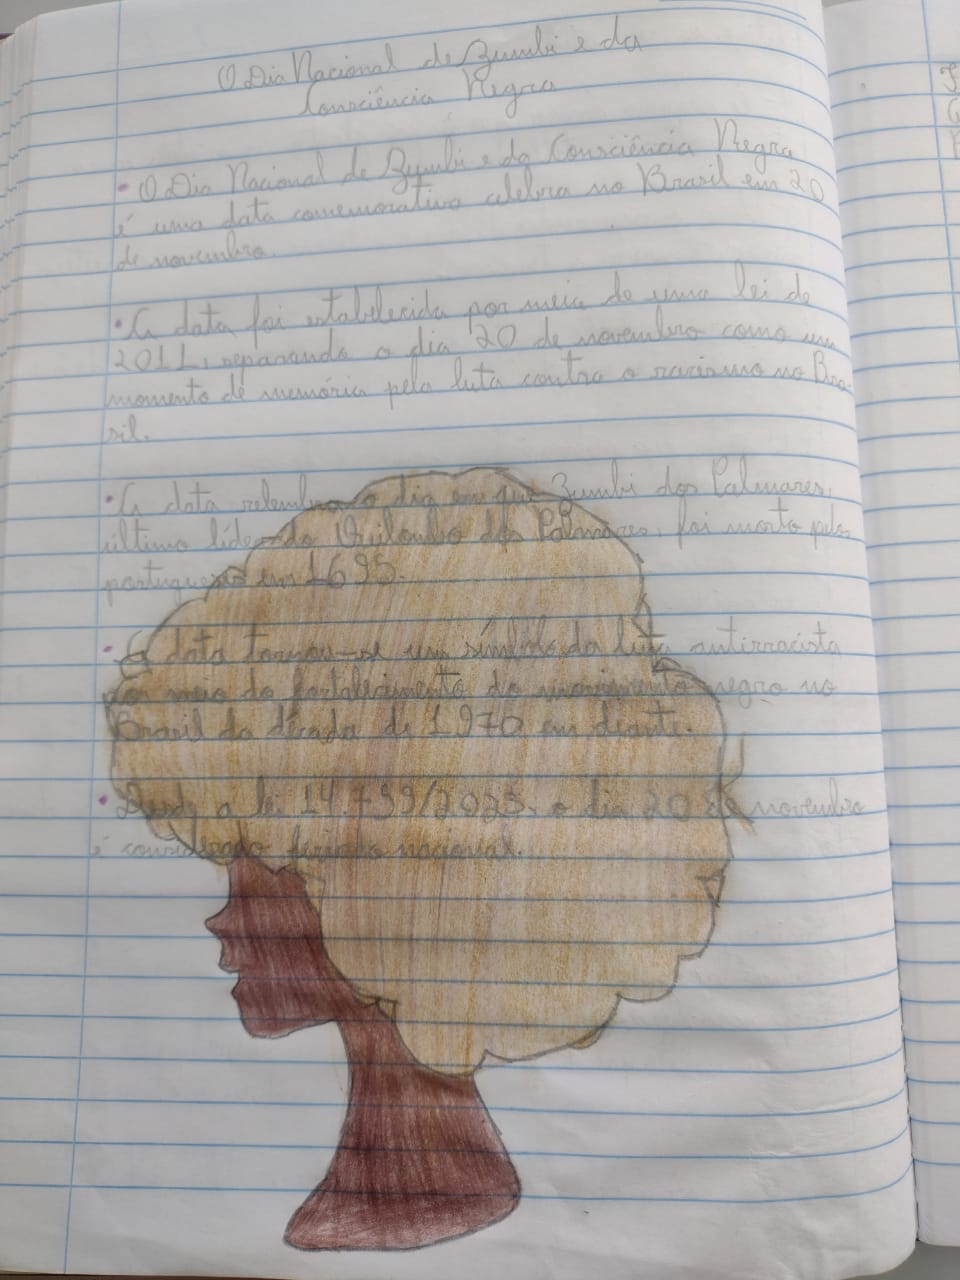 O Dia Nacional de Zumbi e da
Consciência Negra
• O Dia Nacional de Zumbi e da Consciência Negra
é uma data comemorativa celebra no Brasil em 20
de novembro.
• A data foi estabelecida por meio de uma lei de
2011, separando o dia 20 de novembro como um
momento de memória pela luta contra o racismo no Bra-
sil.
• A data relembra o dia em que Zumbi dos Palmares,
último líder do Quilombo dos Palmares, foi morto pelos
portugueses em 1695.
• A data tornou-se um símbolo da luta antirracista
por meio do fortalecimento do movimento negro no
Brasil da década de 1970 em diante.
• Desde a lei 14.799/2023, o dia 20 de novembro
é considerado feriado nacional.